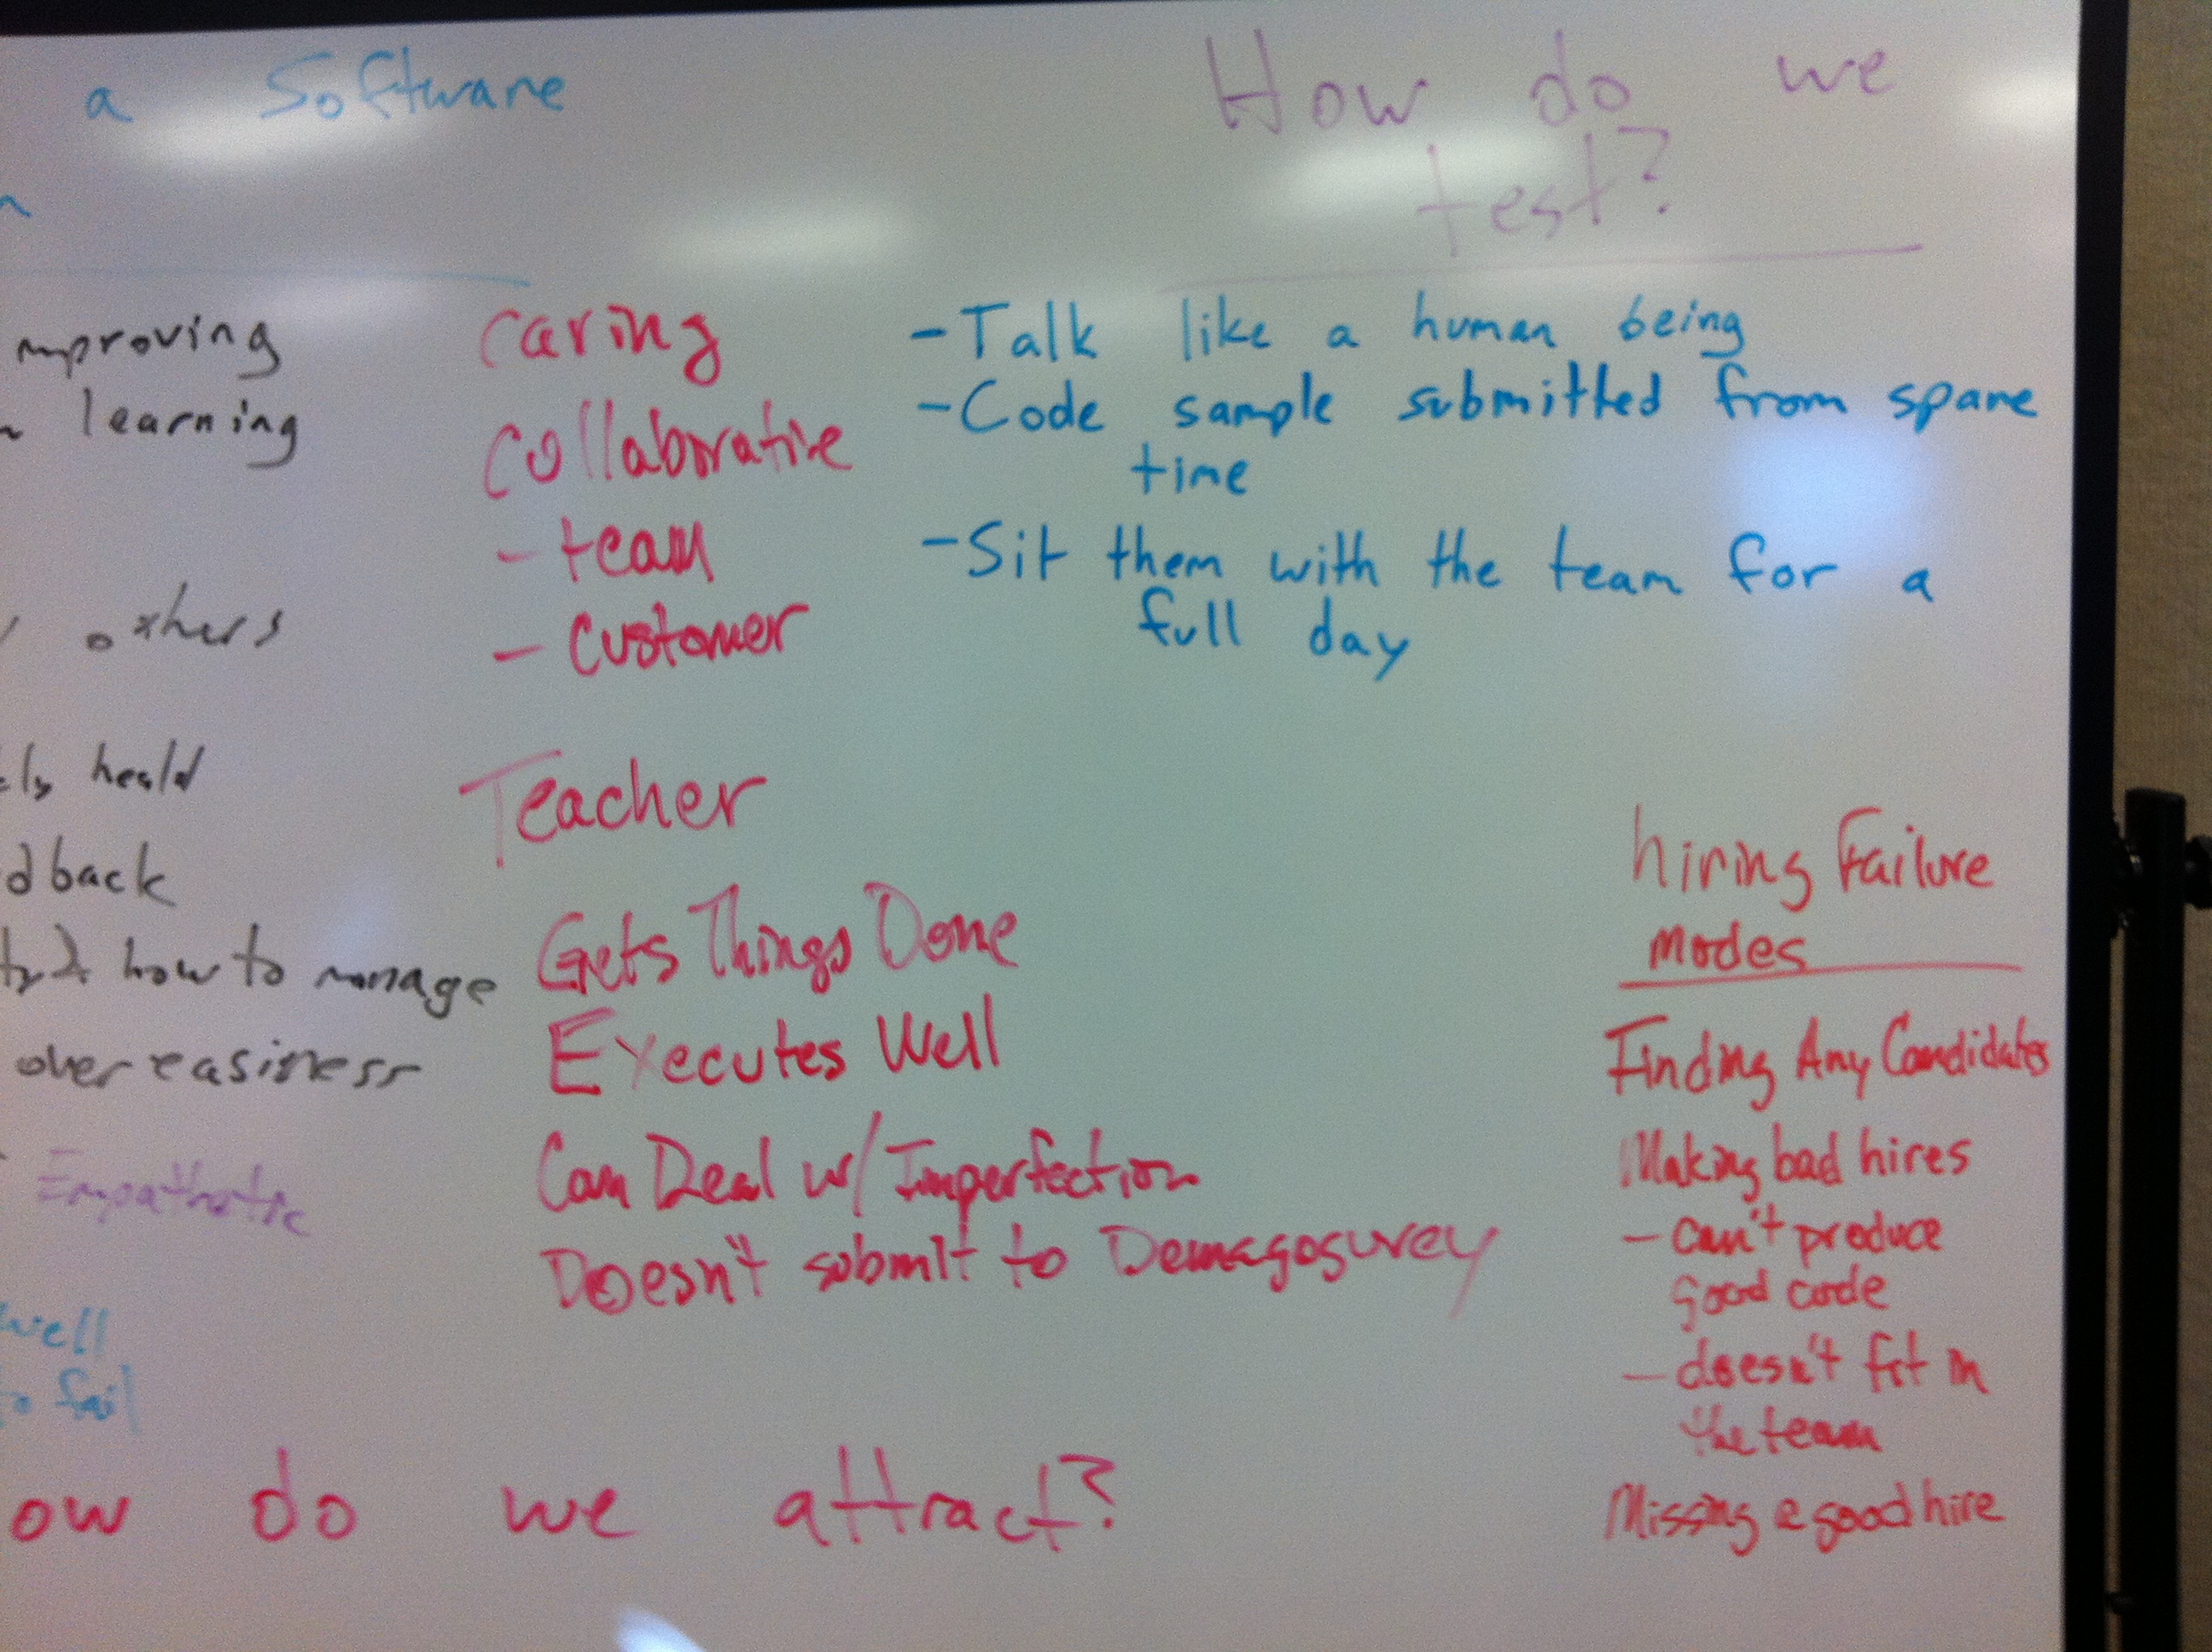 a Software
improving
learning
others
how to manage
over easiness
Empathetic
well
to fail
caring
collaborative
- team
- customer
Teacher
Gets Things Done
Executes Well
Can Deal w/ Imperfection
Doesn't submit to
ow do we attract?
How do we
test?
- Talk like a human being
- Code sample submitted from spare
time
- Sit them with the team for a
full day
hiring Failure
modes
Finding Any Candidates
Making bad hires
- can't produce
good code
- doesn't fit in
the team
Missing a good hire